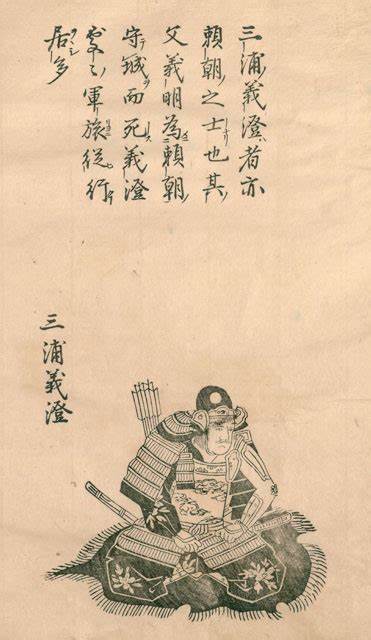 三浦義澄者亦
頼朝之士也其
父義明為頼朝
守城而死義澄
雯〻軍旅従行
居多
三浦義澄